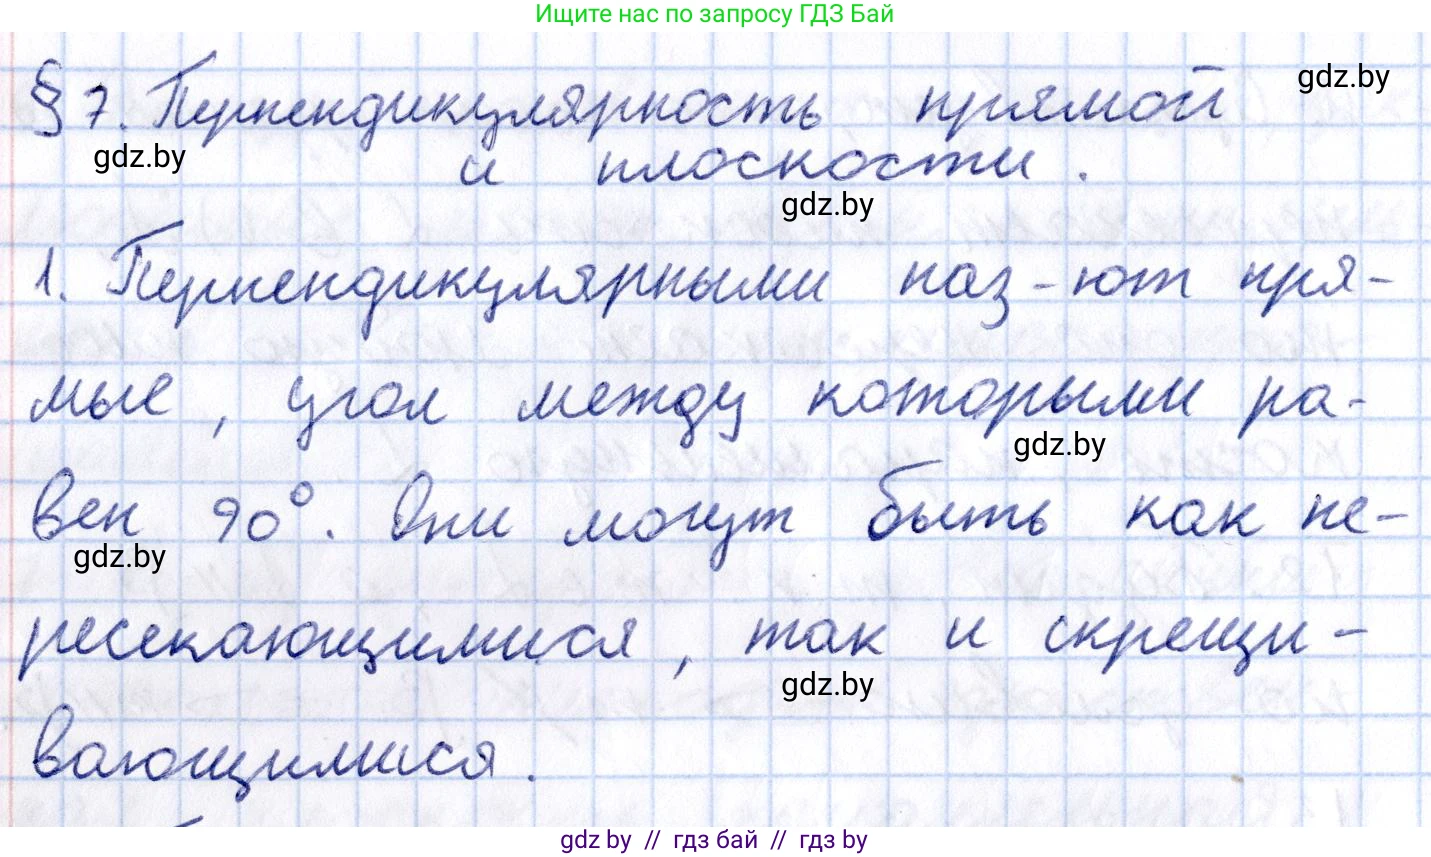 Ищите нас по запросу ГДЗ Бай
gdz.by
§ 7. Перпендикулярность прямой
gdz.by
и плоскости.
gdz.by
1. Перпендикулярными наз-ют пря-
мые, угол между которыми ра-
gdz.by
вен 90°. Они могут быть как пе-
gdz.by
ресекающимися, так и скрещи-
gdz.by
вающимися.
gdz.by // гдз бай // гдз by